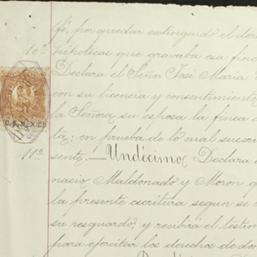 fé, por quedar estinguido el dere
10ª hipoteca que gravaba esa finca
Declara el Señor José Maria
con su licencia y consentimiento
la Señora su esposa la finca
ta; en prueba de lo cual suscri
11ª sente. Undécima. Declara
nacio Maldonado y Moron q
la presente escritura segun se
su resguardo, y recibirá el testim
para ejercitar los derechos de do